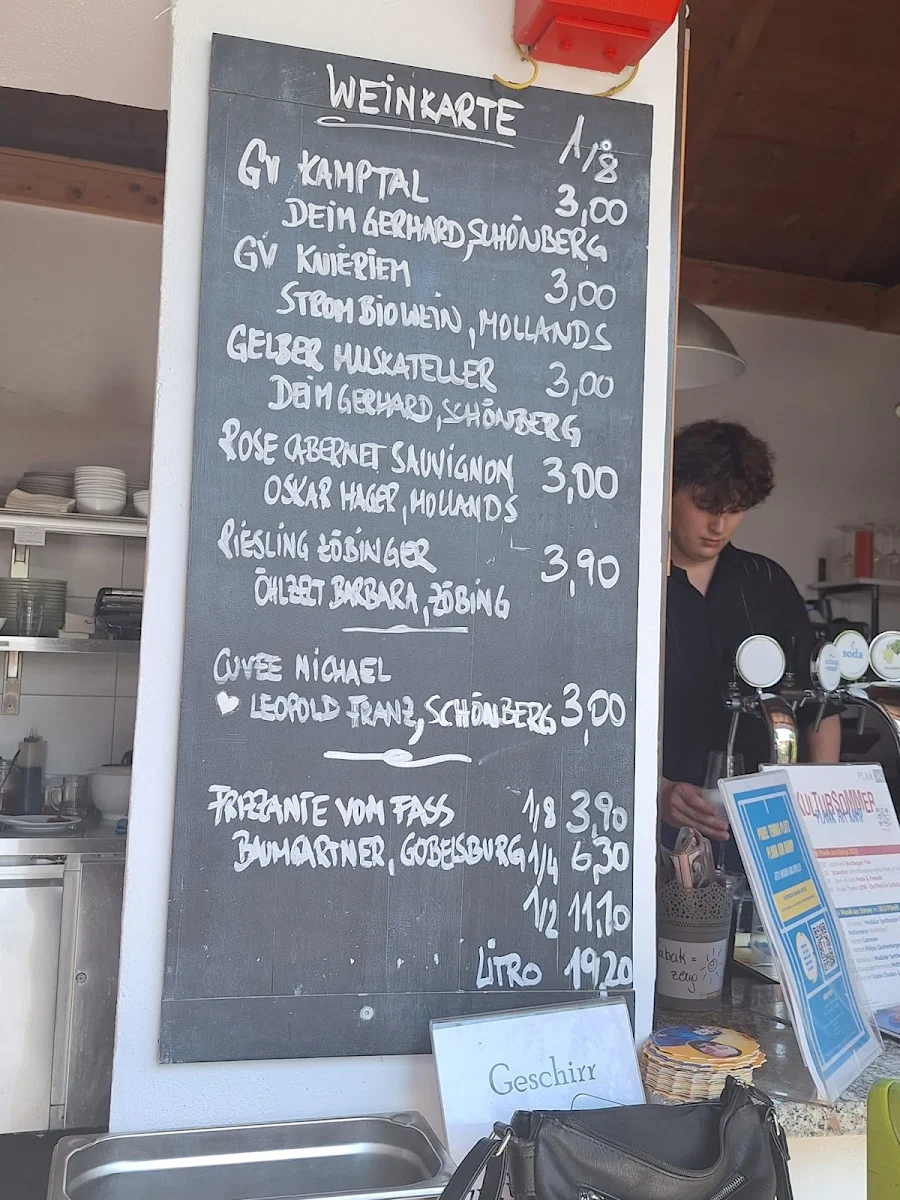 WEINKARTE
1/8
GV KAMPTAL 3,00
DEIM GERHARD, SCHÖNBERG
GV KNIERIEM 3,00
STROM BIOWEIN, MOLLANDS
GELBER MUSKATELLER 3,00
DEIM GERHARD, SCHÖNBERG
ROSE CABERNET SAUVIGNON 3,00
OSKAR HAGER, MOLLANDS
RIESLING ZÖBINGER 3,90
ÖHLZELT BARBARA, ZÖBING
CUVEE MICHAEL
LEOPOLD FRANZ, SCHÖNBERG 3,00
FRIZZANTE VOM FASS 1/8 3,90
BAUMGARTNER, GOBELSBURG 1/4 6,30
1/2 11,10
LITRO 19,20
Geschirr
soda
KULTURSOMMER